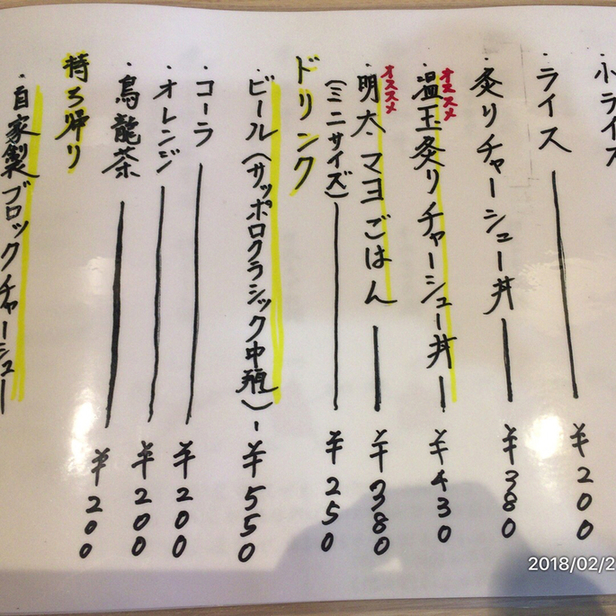 小ライス
・ライス ¥200
・炙りチャーシュー丼 ¥380
オススメ
・温玉炙りチャーシュー丼 ¥430
オススメ
・明太マヨごはん ¥380
(ミニサイズ) ¥250
ドリンク
・ビール(サッポロクラシック中瓶) ¥550
・コーラ ¥200
・オレンジ ¥200
・烏龍茶 ¥200
持ち帰り
・自家製ブロックチャーシュー
2018/02/2